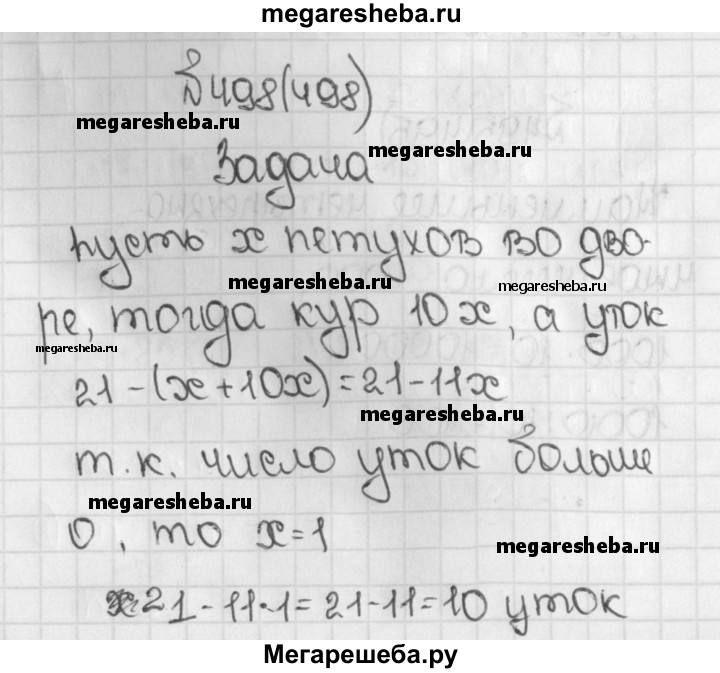 megaresheba.ru
№498(498)
megaresheba.ru
Задача
megaresheba.ru
пусть x петухов во дво-
megaresheba.ru
megaresheba.ru
ре, тогда кур 10x, а уток
megaresheba.ru
21-(x+10x)=21-11x
megaresheba.ru
т.к. число уток больше
megaresheba.ru
0, то x=1
megaresheba.ru
21-11·1=21-11=10 уток
Мегарешеба.ру